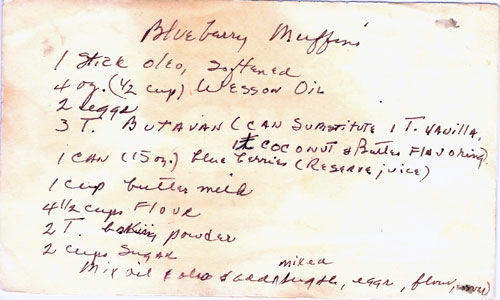 Blueberry Muffins
1 stick oleo, softened
4 oz. (1/2 cup) Wesson Oil
2 eggs
3 T. BUTAVAN (CAN SUBSTITUTE 1 T. VANILLA,
1 t COCONUT & Butter FLAVORING)
1 CAN (15 oz.) blueberries (Reserve juice)
1 cup buttermilk
4 1/2 cups Flour
2 T. baking powder
2 cups Sugar
mixed
Mix oil & oleo & add sugar, eggs, flour,